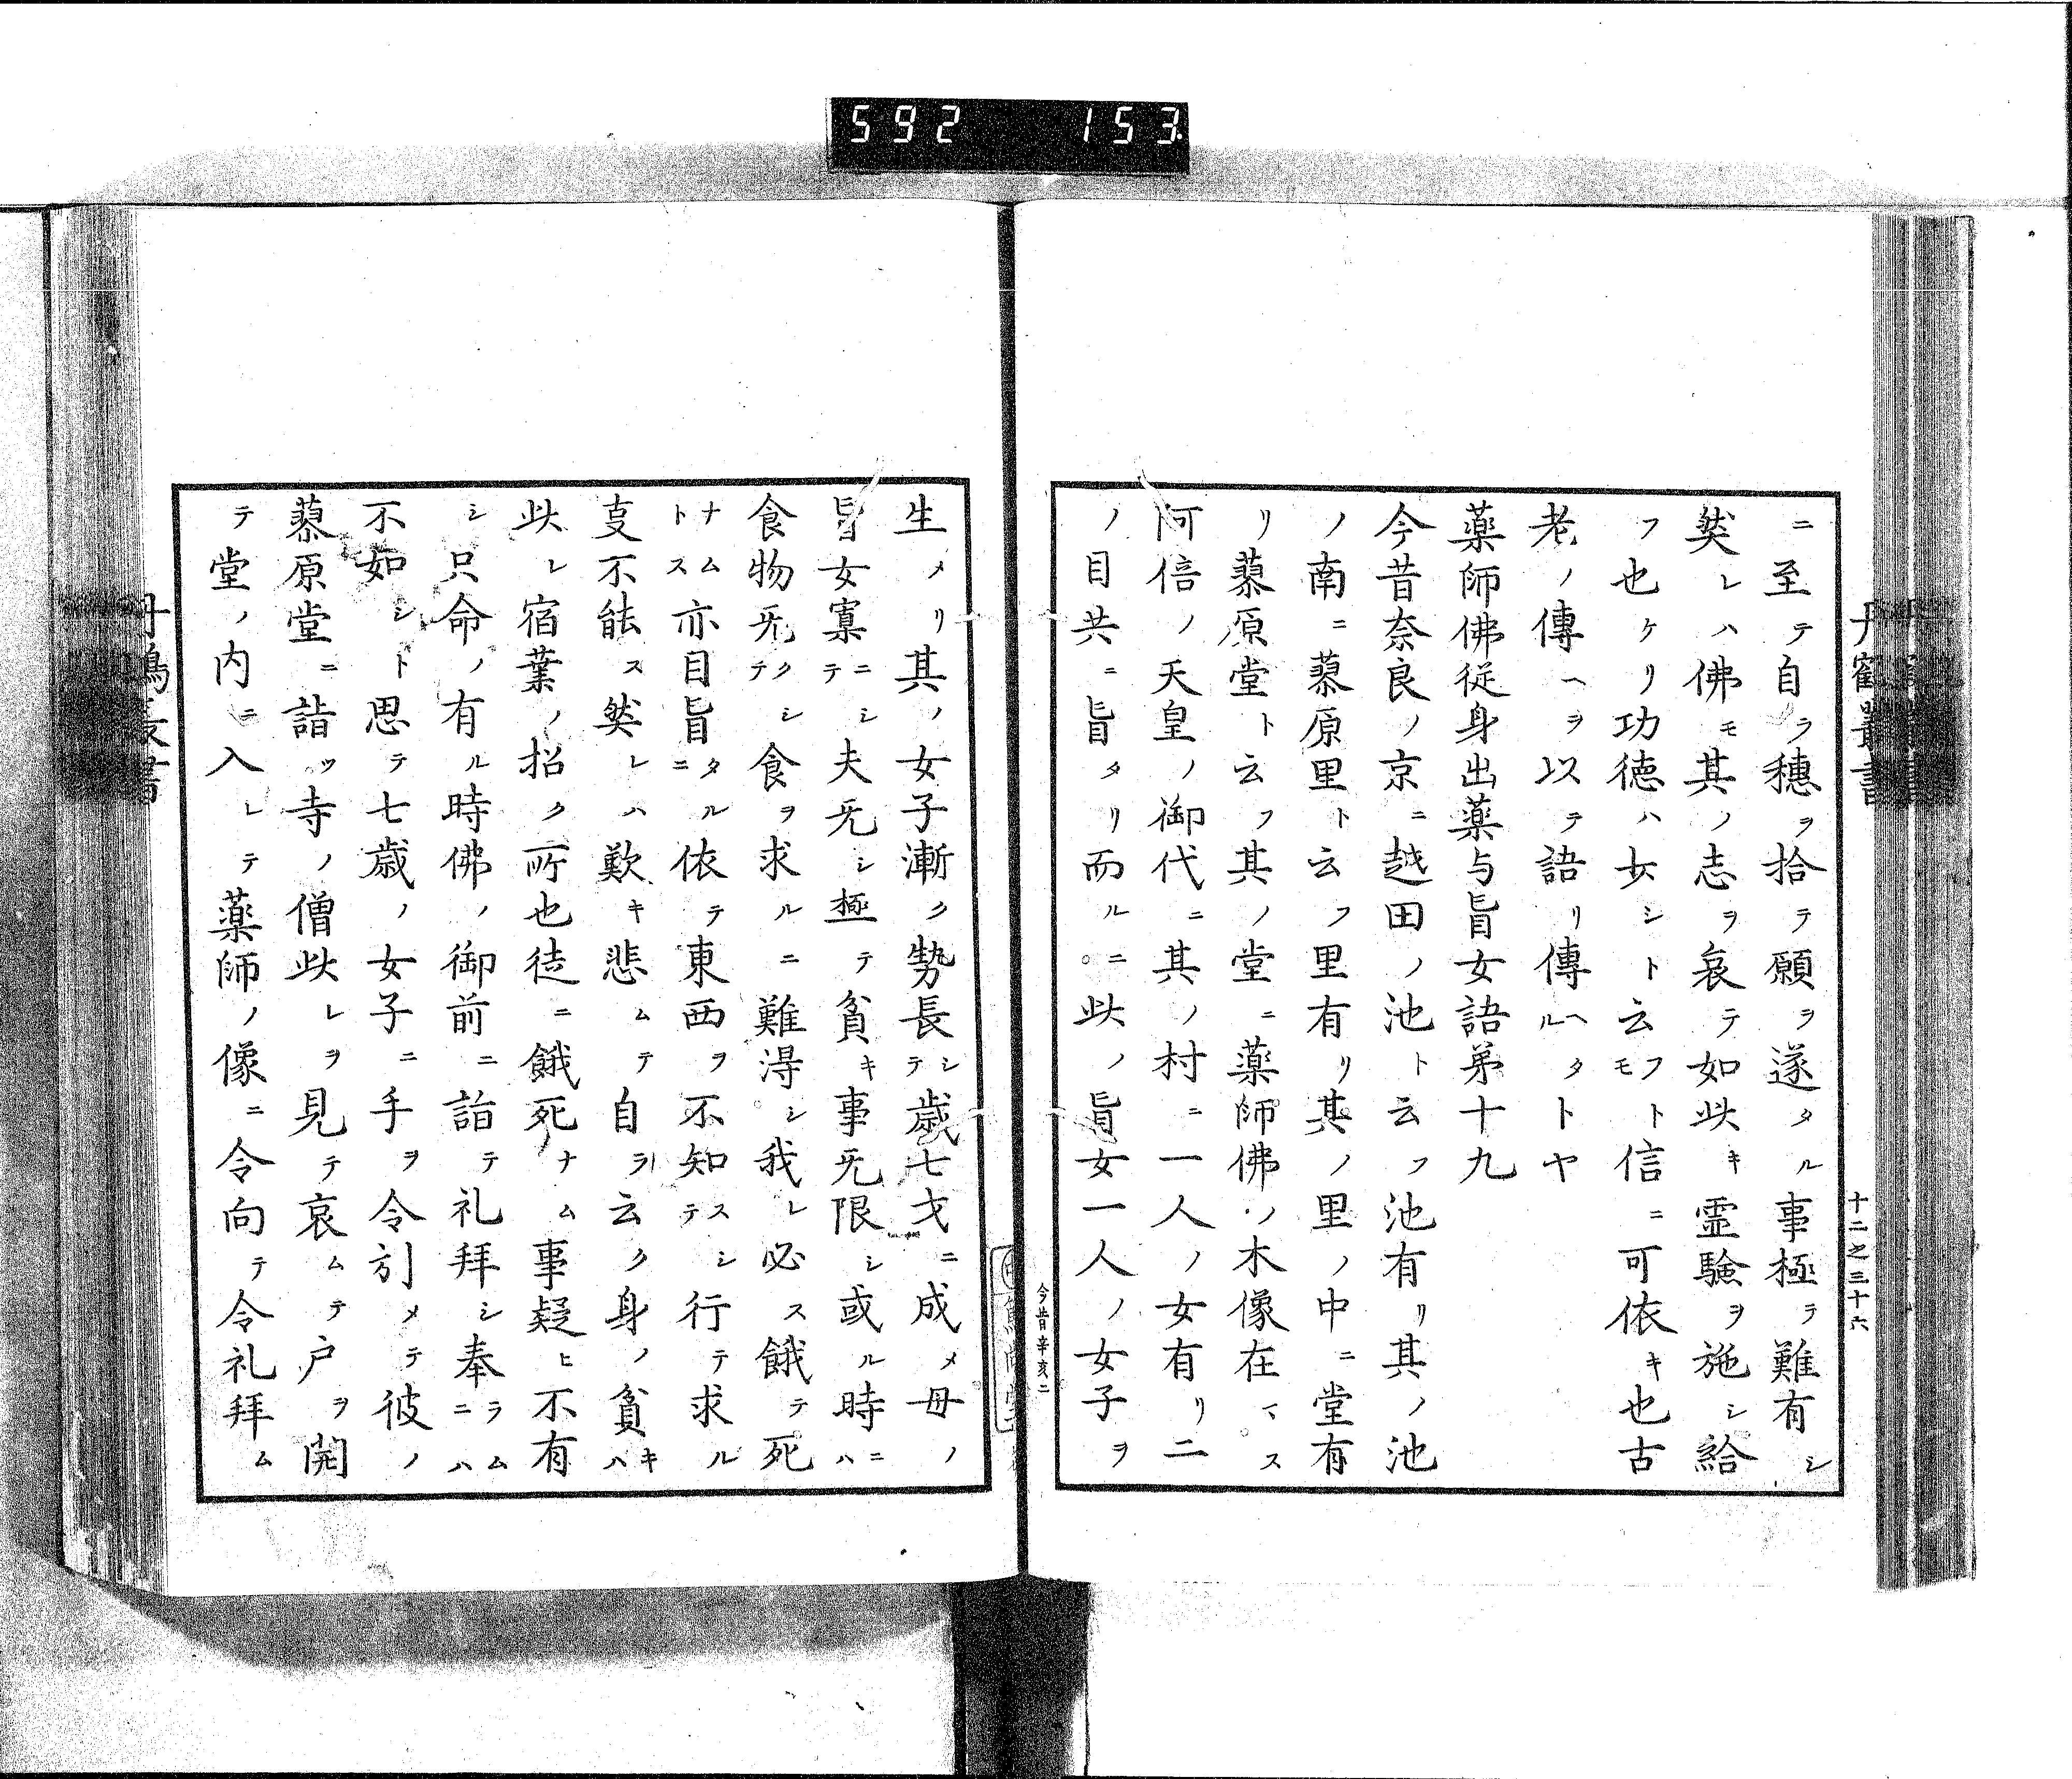 592 153
丹鶴叢書
十二之三十六
ニ至テ自ラ穗ヲ拾テ願ヲ遂タル事極テ難有シ
然レハ佛モ其ノ志ヲ哀テ如此キ霊験ヲ施シ給
フ也ケリ功徳ハ女シト云フトモ信ニ可依キ也古
老ノ傳ヘヲ以テ語リ傳ヘタルトヤ
薬師佛従身出薬与盲女語苐十九
今昔奈良ノ京ニ越田ノ池ト云フ池有リ其ノ池
ノ南ニ蓼原里ト云フ里有リ其ノ里ノ中ニ堂有
リ蓼原堂ト云フ其ノ堂ニ薬師佛ノ木像在マス
阿倍ノ天皇ノ御代ニ其ノ村ニ一人ノ女有リ二
ノ目共ニ盲タリ而ルニ此ノ盲女一人ノ女子ヲ
今昔辛亥二
生メリ其ノ女子漸ク勢長シテ歳七才ニ成メ母ノ
盲女寡ニシテ夫旡シ極テ貧キ事旡限シ或ル時ニハ
食物旡クシテ食ヲ求ルニ難淂シ我レ必ス餓テ死
ナムトス亦目盲タルニ依テ東西ヲ不知スシテ行テ求ル
叓不能ス然レハ歎キ悲ムテ自ラ云ク身ノ貧キハ
此レ宿業ノ招ク所也徒ニ餓死ナム事疑ヒ不有
シ只命ノ有ル時佛ノ御前ニ詣テ礼拜シ奉ラムニハ
不如シト思テ七歳ノ女子ニ手ヲ令引メテ彼ノ
蓼原堂ニ詣ッ寺ノ僧此レヲ見テ哀ムテ戸ヲ開
テ堂ノ内ニ入レテ薬師ノ像ニ令向テ令礼拜ム